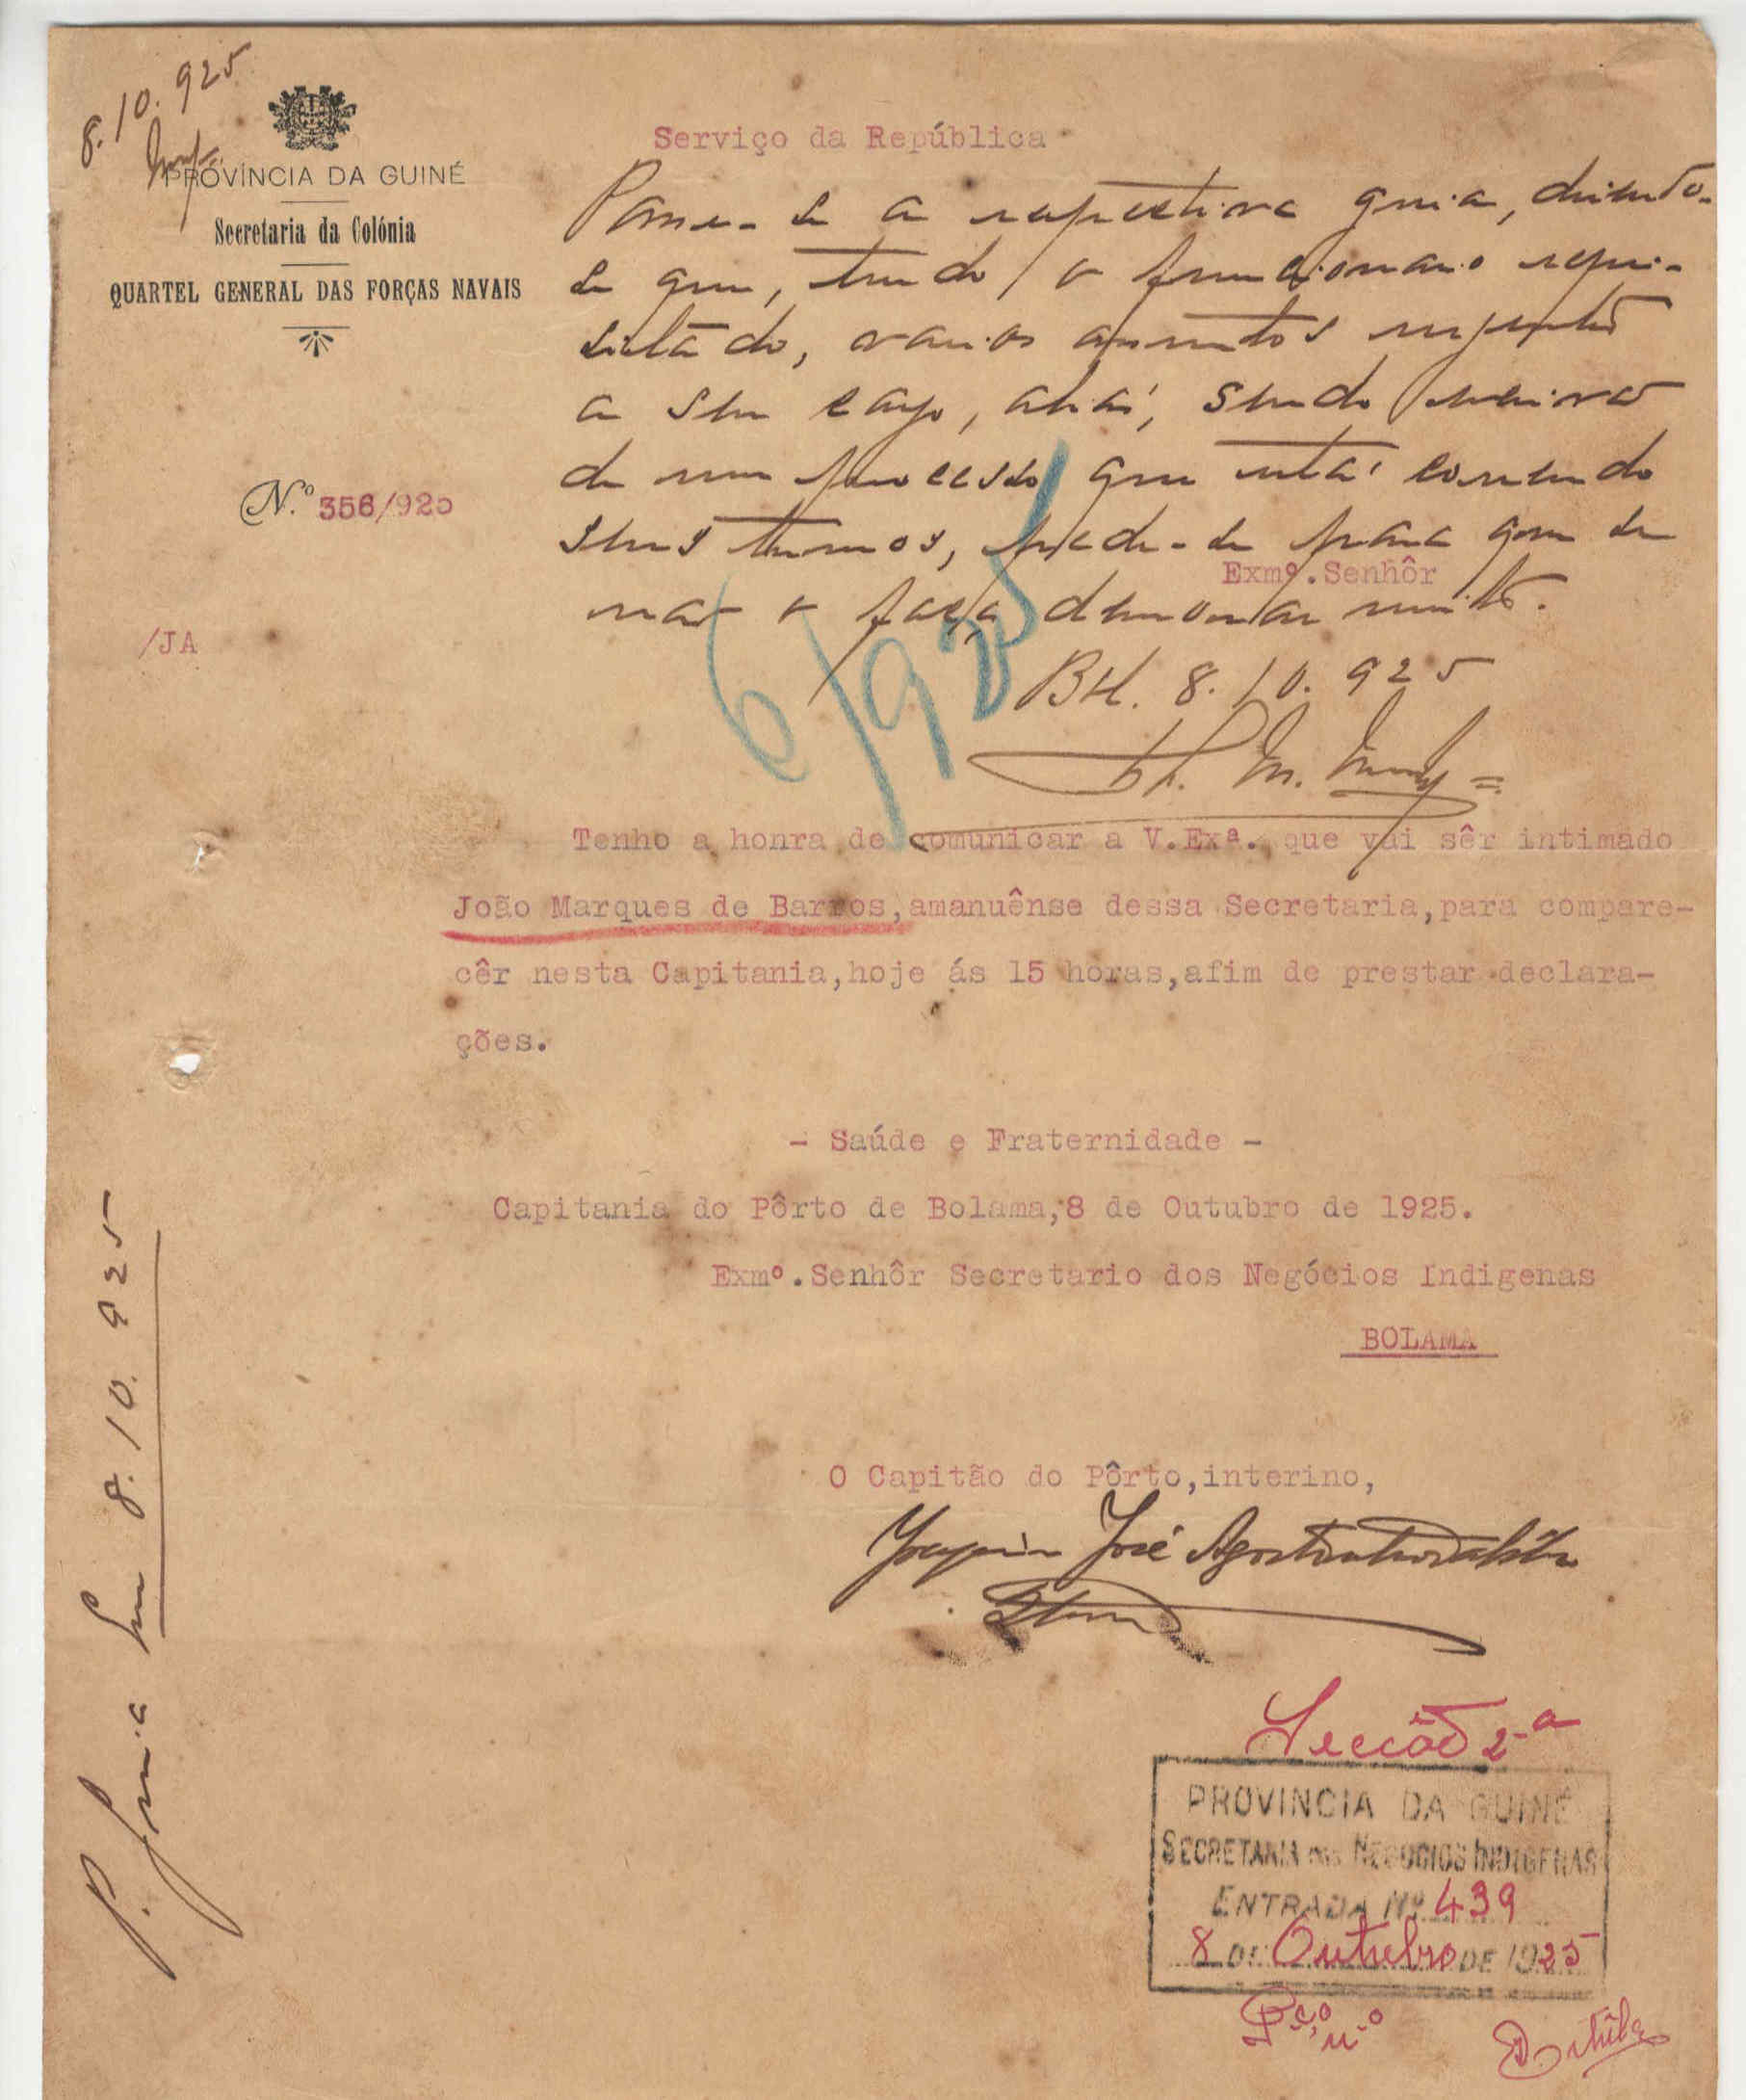 8.10.925
PROVÍNCIA DA GUINÉ
Secretaria da Colónia
QUARTEL GENERAL DAS FORÇAS NAVAIS
Nº 356/925
/JA
Serviço da República
Passe-se a respectiva guia, dizendo-
se que, tendo o funcionario requi-
sitado, varios assuntos urgentes
a seu cargo, aliás, sendo
de um processo que está correndo
seus termos, pede-se para que se
não o faça demorar muito.
Exmº.Senhôr
Bª. 8.10.925
6/925
Tenho a honra de comunicar a V.Exª. que vai sêr intimado
João Marques de Barros,amanuênse dessa Secretaria,para compare-
cêr nesta Capitania,hoje ás 15 horas,afim de prestar declara-
ções.
- Saúde e Fraternidade -
Capitania do Pôrto de Bolama,8 de Outubro de 1925.
Exmº.Senhôr Secretario dos Negócios Indigenas
BOLAMA
O Capitão do Pôrto,interino,
Joaquim José
P. guia em 8.10.925
Secção 2-ª
PROVINCIA DA GUINÉ
SECRETARIA DOS NEGOCIOS INDIGENAS
ENTRADA Nº 439
8 DE Outubro DE 1925
Pº nº